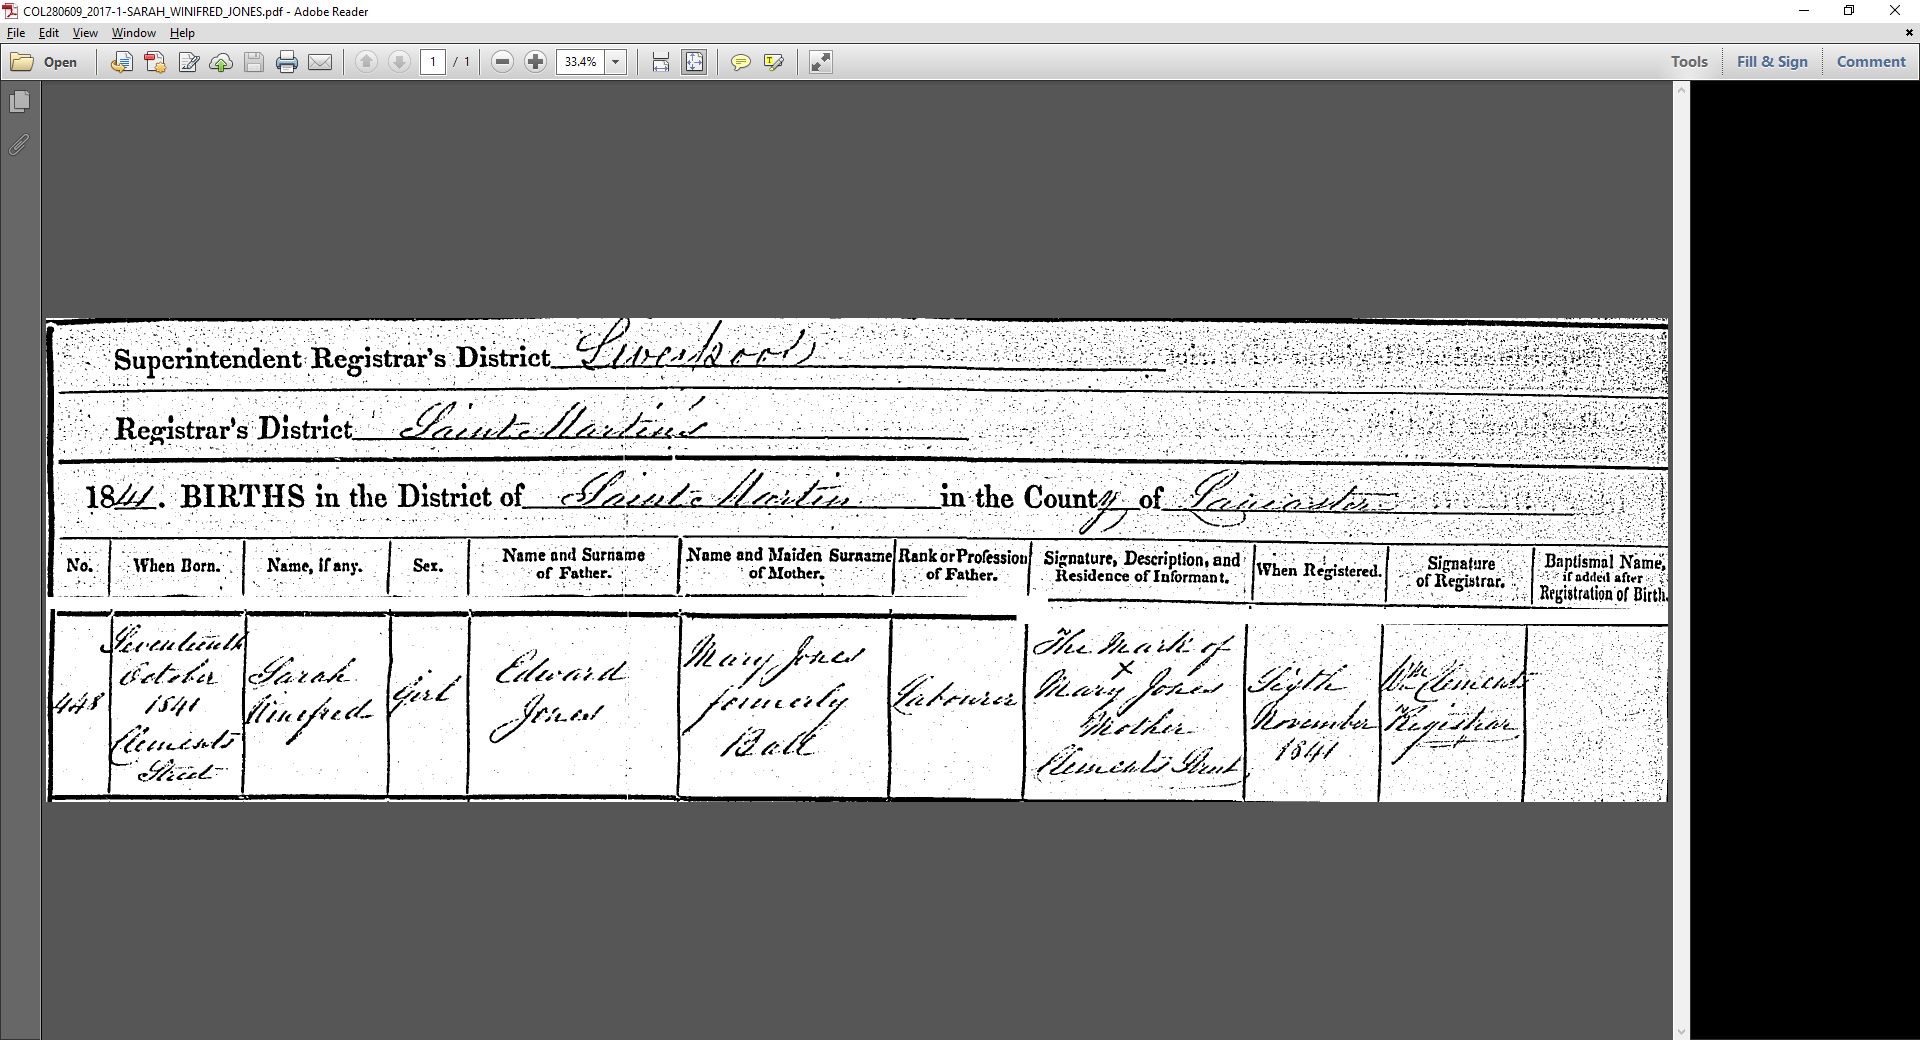 COL280609_2017-1-SARAH_WINIFRED_JONES.pdf - Adobe Reader
File Edit View Window Help
Open 1 / 1 33.4% Tools Fill & Sign Comment
Superintendent Registrar's District Liverpool
Registrar's District Saint Martin's
1841. BIRTHS in the District of Saint Martin in the County of Lancaster
No.
When Born.
Name, if any.
Sex.
Name and Surname
of Father.
Name and Maiden Surname
of Mother.
Rank or Profession
of Father.
Signature, Description, and
Residence of Informant.
When Registered.
Signature
of Registrar.
Baptismal Name,
if added after
Registration of Birth.
448
Seventeenth
October
1841
Clements
Street
Sarah
Winefred
Girl
Edward
Jones
Mary Jones
formerly
Ball
Labourer
The Mark of
X
Mary Jones
Mother
Clements Street
Sixth
November
1841
Wm Clements
Registrar